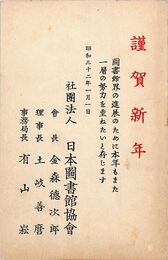 謹賀新年
圖書館界の進展のために本年もまた
一層の努力を重ねたいと存じます
昭和三十二年一月一日
社團法人 日本圖書館協會
會長 金森德次郎
理事長 土岐善麿
事務局長 有山崧